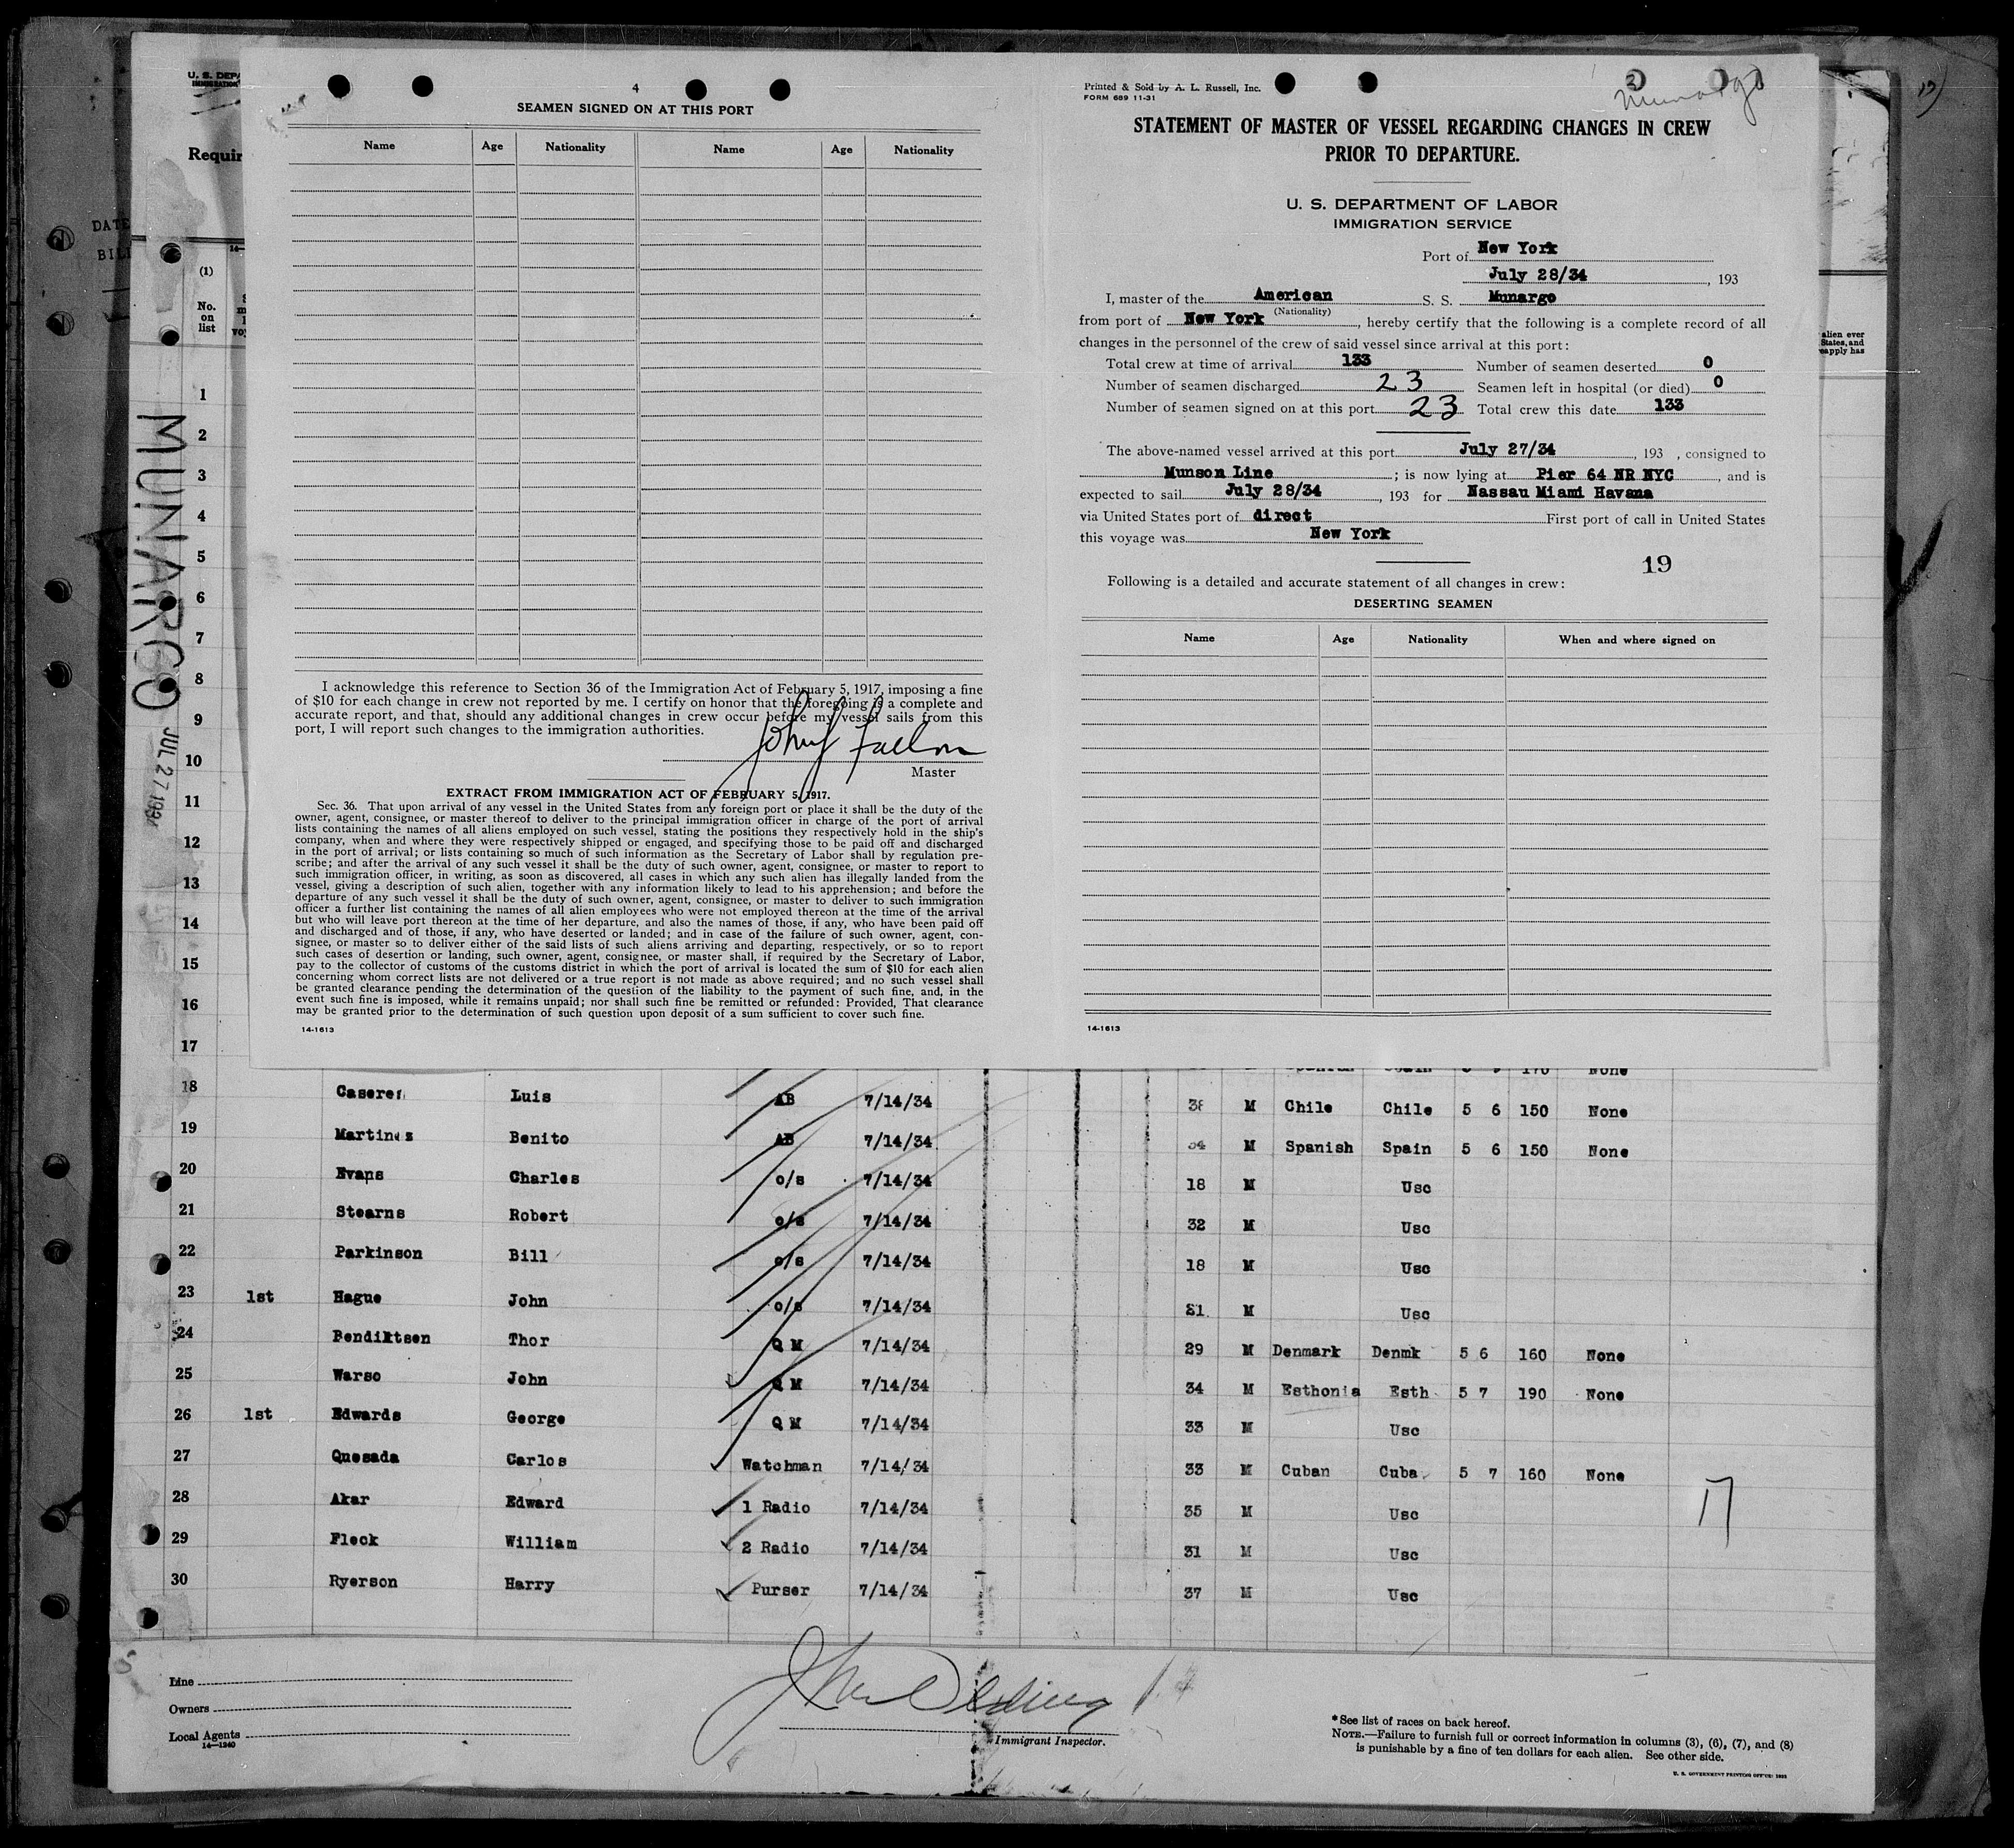 U. S. DEPA
IMMIGRATION
Requir
DATE
BILL
14—
(1)
No.
on
list
MUNARGO
JUL 27 1934
4
SEAMEN SIGNED ON AT THIS PORT
Name Age Nationality Name Age Nationality
I acknowledge this reference to Section 36 of the Immigration Act of February 5, 1917, imposing a fine
of $10 for each change in crew not reported by me. I certify on honor that the foregoing is a complete and
accurate report, and that, should any additional changes in crew occur before my vessel sails from this
port, I will report such changes to the immigration authorities.
Master
EXTRACT FROM IMMIGRATION ACT OF FEBRUARY 5, 1917.
Sec. 36. That upon arrival of any vessel in the United States from any foreign port or place it shall be the duty of the
owner, agent, consignee, or master thereof to deliver to the principal immigration officer in charge of the port of arrival
lists containing the names of all aliens employed on such vessel, stating the positions they respectively hold in the ship's
company, when and where they were respectively shipped or engaged, and specifying those to be paid off and discharged
in the port of arrival; or lists containing so much of such information as the Secretary of Labor shall by regulation pre-
scribe; and after the arrival of any such vessel it shall be the duty of such owner, agent, consignee, or master to report to
such immigration officer, in writing, as soon as discovered, all cases in which any such alien has illegally landed from the
vessel, giving a description of such alien, together with any information likely to lead to his apprehension; and before the
departure of any such vessel it shall be the duty of such owner, agent, consignee, or master to deliver to such immigration
officer a further list containing the names of all alien employees who were not employed thereon at the time of the arrival
but who will leave port thereon at the time of her departure, and also the names of those, if any, who have been paid off
and discharged and of those, if any, who have deserted or landed; and in case of the failure of such owner, agent, con-
signee, or master so to deliver either of the said lists of such aliens arriving and departing, respectively, or so to report
such cases of desertion or landing, such owner, agent, consignee, or master shall, if required by the Secretary of Labor,
pay to the collector of customs of the customs district in which the port of arrival is located the sum of $10 for each alien
concerning whom correct lists are not delivered or a true report is not made as above required; and no such vessel shall
be granted clearance pending the determination of the question of the liability to the payment of such fine, and, in the
event such fine is imposed, while it remains unpaid; nor shall such fine be remitted or refunded: Provided, That clearance
may be granted prior to the determination of such question upon deposit of a sum sufficient to cover such fine.
14-1613
Printed & Sold by A. L. Russell, Inc.
FORM 689 11-31
Munargo
STATEMENT OF MASTER OF VESSEL REGARDING CHANGES IN CREW
PRIOR TO DEPARTURE.
U. S. DEPARTMENT OF LABOR
IMMIGRATION SERVICE
Port of New York
July 28/34, 193
I, master of the American S. S. Munargo
(Nationality)
from port of New York, hereby certify that the following is a complete record of all
changes in the personnel of the crew of said vessel since arrival at this port:
Total crew at time of arrival 133 Number of seamen deserted 0
Number of seamen discharged 23 Seamen left in hospital (or died) 0
Number of seamen signed on at this port 23 Total crew this date 133
The above-named vessel arrived at this port July 27/34, 193 , consigned to
Munson Line; is now lying at Pier 64 NR NYC, and is
expected to sail July 28/34, 193 for Nassau Miami Havana
via United States port of direct First port of call in United States
this voyage was New York
19
Following is a detailed and accurate statement of all changes in crew:
DESERTING SEAMEN
Name Age Nationality When and where signed on
14-1613
alien ever
States, and
reapply has
1
2
3
4
5
6
7
8
9
10
11
12
13
14
15
16
17 170 None
18 Luis AB 7/14/34 M Chile Chile 5 6 150 None
19 Martinez Benito AB 7/14/34 34 M Spanish Spain 5 6 150 None
20 Evans Charles o/s 7/14/34 18 M Usc
21 Stearns Robert o/s 7/14/34 32 M Usc
22 Parkinson Bill o/s 7/14/34 18 M Usc
23 1st Hague John o/s 7/14/34 M Usc
24 Bendiktsen Thor Q M 7/14/34 29 M Denmark Denmk 5 6 160 None
25 Warso John Q M 7/14/34 34 M Esthonia Esth 5 7 190 None
26 1st Edwards George Q M 7/14/34 33 M Usc
27 Quesada Carlos Watchman 7/14/34 33 M Cuban Cuba 5 7 160 None
28 Akar Edward 1 Radio 7/14/34 35 M Usc
29 Fleck William 2 Radio 7/14/34 31 M Usc
30 Ryerson Harry Purser 7/14/34 37 M Usc
17
Line
Owners
Local Agents
14—1240
Immigrant Inspector.
*See list of races on back hereof.
NOTE.—Failure to furnish full or correct information in columns (3), (6), (7), and (8)
is punishable by a fine of ten dollars for each alien. See other side.
U. S. GOVERNMENT PRINTING OFFICE: 1933